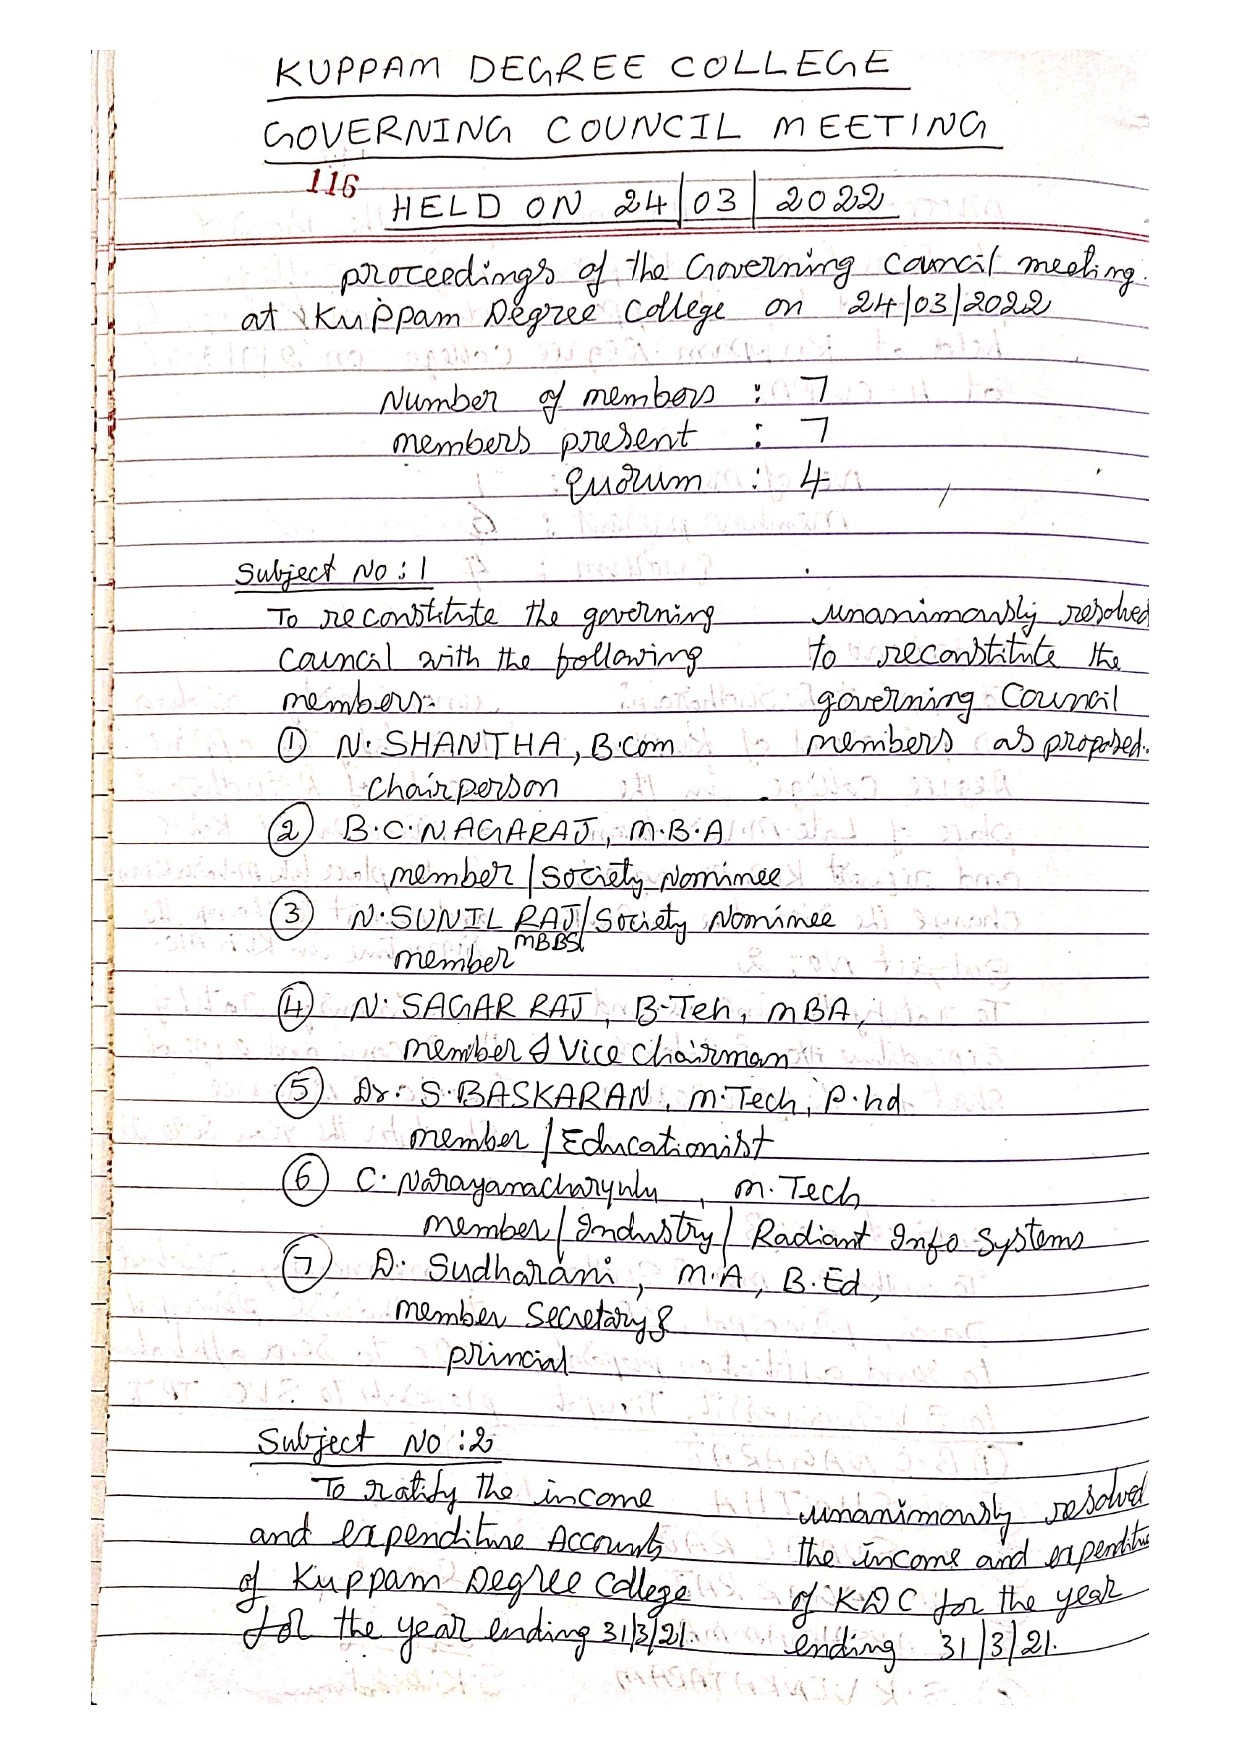 KUPPAM DEGREE COLLEGE
GOVERNING COUNCIL MEETING
116
HELD ON 24/03/2022
proceedings of the Governing Council meeting.
at Kuppam Degree College on 24/03/2022
Number of members : 7
members present : 7
Quorum : 4
Subject No : 1
To reconstitute the governing
Council with the following
members:-
① N. SHANTHA, B.Com
Chairperson
② B.C. NAGARAJ, M.B.A
member / Society Nominee
③ N. SUNIL RAJ / Society Nominee
MBBS
member
④ N. SAGAR RAJ, B-Teh, MBA,
member & Vice Chairman
⑤ Dr. S. BASKARAN, M.Tech, P.hd
member / Educationist
⑥ C. Narayanacharyulu, M.Tech
member / Industry / Radiant Info Systems
⑦ D. Sudharani, M.A, B.Ed,
member Secretary &
princial
unanimously resolved
to reconstitute the
governing Council
members as proposed.
Subject No : 2
To ratify the income
and expenditure Accounts
of Kuppam Degree College
for the year ending 31/3/21.
unanimously resolved
the income and expenditu
of KDC for the year
ending 31/3/21.